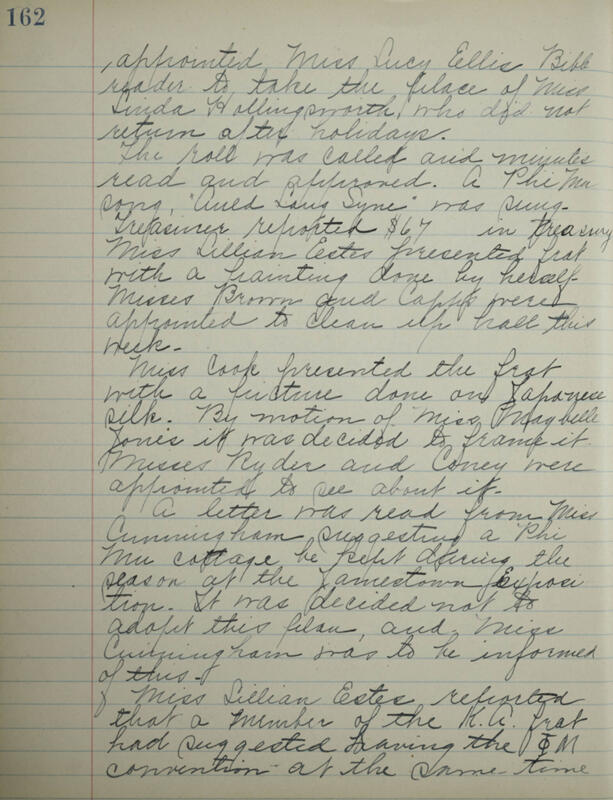 162
appointed Miss Lucy Ellis Bible
reader to take the place of Miss
Linda Hollingsworth, who did not
return after holidays.
The roll was called and minutes
read and approved. A Phi Mu
song, "Auld Lang Syne" was sung.
Treasurer reported $67 in treasury
Miss Lillian Estes presented frat
with a painting done by herself.
Misses Brown and Capps were
appointed to clean up hall this
week.
Miss Cook presented the frat
with a picture done on Japanese
silk. By motion of Miss Maybelle
Jones it was decided to frame it
Misses Ryder and Coney were
appointed to see about it.
A letter was read from Miss
Cunningham suggesting a Phi
Mu cottage be kept during the
season at the Jamestown Exposi
tion. It was decided not to
adopt this plan, and Miss
Cunningham was to be informed
of this.
Miss Lillian Estes reported
that a member of the K.A. frat
had suggested having the Φ M
convention at the same time